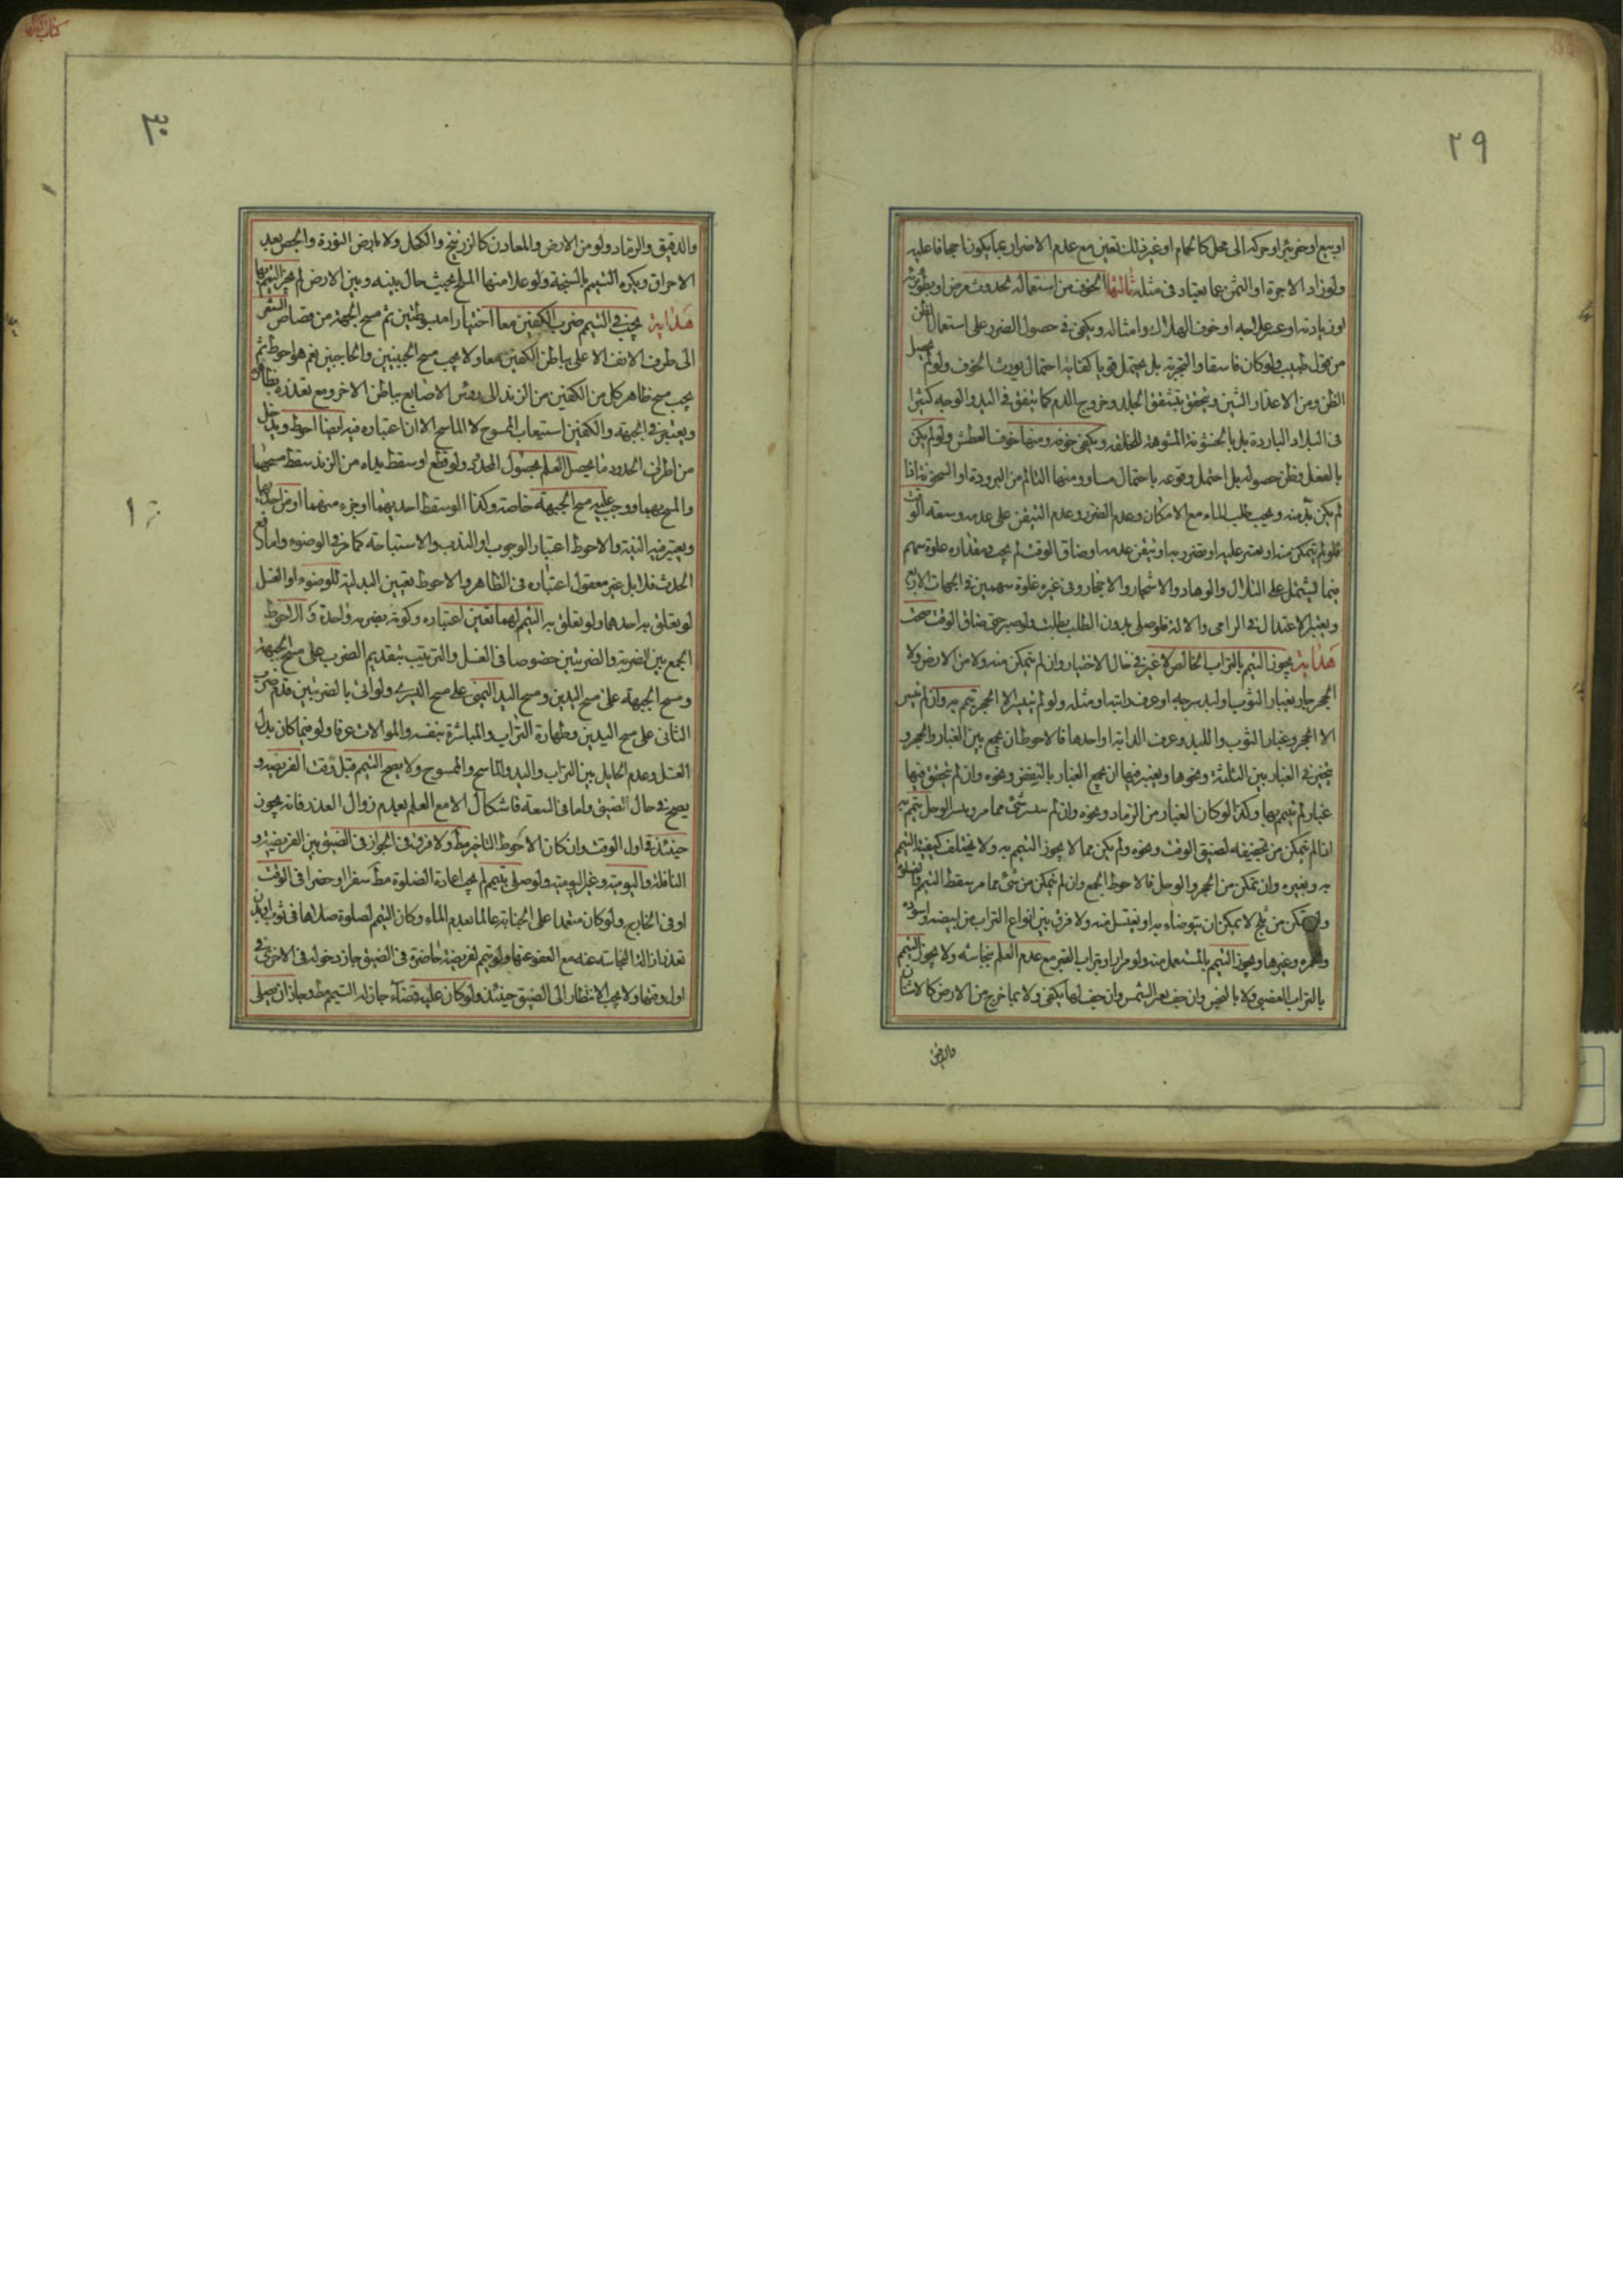 ٢٩
او بيع او خر بئر او حركه الى محل كالحمام او غير ذلك تعين مع عدم الاضرار بما يكون اجحافا عليه
ولو زاد الاجرة او الثمن عما يعتاد فى مثله ثالثها الخوف من استعماله لحدوث مرض او بطؤ برئه
او زيادته او عسر علاجه او خوف الهلاك وامثاله ويكفى فى حصول الضرر على استعمال الظن
من قول طبيب ولو كان فاسقا والتجربة بل يحتمل قويا كفاية احتمال يورث الخوف ولو لم يحصل
الظن ومن الاعذار الشين ويتحقق بتشقق الجلد وخروج الدم كما يتفق فى اليد والوجه كثيرا
فى البلاد الباردة بل بالخشونة المشوهة للخلقة ويكفى خوفه ومنها خوف العطش ولو لم يكن
بالفعل وظن حصوله بل احتمل وقوعه باحتمال مساو ومنها التالم من البرودة او السخونة اذا
لم يكن بد منه ويجب طلب الماء مع الامكان وعدم الضرر وعدم التيقن على عدمه وسعة الوقت
فلو لم يتمكن منه او يعسر عليه او يضرر به او تيقن عدمه او ضاق الوقت لم يجب ومقداره غلوة سهم
فيما يشتمل على التلال والوهاد والاشجار والاحجار وفى غيره غلوة سهمين فى الجهات الاربع
ويعتبر الاعتدال فى الرامى والالة فلو صلى بدون الطلب بطلت ولو صبر حتى ضاق الوقت صحت
هداية يجوز التيمم بالتراب الخالص لا غير فى حال الاختيار وان لم يتمكن منه ولا من الارض ولا
الحجر جاز بغبار الثوب او لبد سرجه او عرف دابته او مثله ولو لم يتيسر الا الحجر تيمم به وان لم تيسر
الا الحجر وغبار الثوب واللبد وعرف الدابة او احدها فالاحوط ان يجمع بين الغبار والحجر و
يتخير فى الغبار بين الثلثة ونحوها ويعتبر فيها ان يجمع الغبار بالنفض ونحوه وان لم يتحقق فيها
غبار لم تيمم بها وكذا لو كان الغبار من الرماد ونحوه وان لم يتيسر شئ مما مر وتيسر الوحل يتيمم به
ان لم يتمكن من تجفيفه لضيق الوقت ونحوه ولم يكن مما لا يجوز التيمم به ولا يختلف كيفية التيمم
به وبغيره وان تمكن من الحجر والوحل فالاحوط الجمع وان لم يتمكن من شئ مما مر سقط التيمم والصلوة
ولو تمكن من ثلج لا يمكن ان يتوضاء به او يغتسل منه ولا فرق بين انواع التراب من ابيضه واسوده
واحمره وغيرها ويجوز التيمم بالمستعمل منه ولو مرارا وبتراب القبر مع عدم العلم بنجاسته ولا يجوز التيمم
بالتراب الغصبى ولا بالنجس وان جف بغير الشمس وان جف بها يكفى ولا بما خرج من الارض كالاشنان
والدقيق
٣٠
والدقيق والرماد ولو من الارض والمعادن كالزرنيخ والكحل ولا بارض النورة والجص بعد
الاحراق ويكره التيمم بالسبخة ولو علا منها الملح بحيث حال بينه وبين الارض لم يجز التيمم بها
هداية يجب فى التيمم ضرب الكفين معا اختيارا مبسوطتين ثم مسح الجبهة من قصاص الشعر
الى طرف الانف الاعلى بباطن الكفين معا ولا يجب مسح الجبينين والحاجبين نعم هو احوط ثم
يجب مسح ظاهر كل من الكفين من الزند الى رؤس الاصابع بباطن الاخر ومع تعذره بظاهره
ويعتبر فى الجبهة والكفين استيعاب الممسوح لا الماسح الا ان اعتباره فيه ايضا احوط ويدخل
من اطراف الحدود ما يحصل العلم بحصول المحدود ولو قطع او سقط يداه من الزند سقط مسحهما
والمسح بهما ووجب عليه مسح الجبهة خاصة وكذا لو سقط احديهما او جزء منهما او من احديهما
ويعتبر فيه النية والاحوط اعتبار الوجوب او الندب والاستباحة كما مر فى الوضوء واما رفع
الحدث فلا بل غير معقول اعتباره فى الظاهر والاحوط تعيين البدلية للوضوء او الغسل
لو يعلق به احدهما ولو تعلق به التيمم لهما تعين اعتباره وكونه بضربة واحدة والاحوط
الجمع بين الضربة والضربتين خصوصا فى الغسل والترتيب بتقديم الضرب على مسح الجبهة
ومسح الجبهة على مسح اليدين ومسح اليد اليمنى على مسح اليسرى ولو اتى بالضربتين قدم ضرب
الثانى على مسح اليدين وطهارة التراب والمباشرة بنفسه والموالات عرفا ولو فيما كان بدل
الغسل وعدم الحايل بين التراب واليد والماسح والممسوح ولا يصح التيمم قبل وقت الفريضة و
يصح فى حال الضيق واما فى السعة فاشكال الا مع العلم بعدم زوال العذر فانه يجوز
حينئذ فى اول الوقت وان كان الاحوط التاخير مط ولا فرق فى الجواز فى الضيق بين الفريضة و
النافلة واليومية وغير اليومية ولو صلى بتيمم لم يجب اعادة الصلوة مط سفرا او حضرا فى الوقت
او فى الخارج ولو كان متعمدا على الجنابة عالما بعدم الماء وكان التيمم لصلوة صلاها فى ثوب او بدن
تعذر ازالة النجاسة عنه مع العفو عنها ولو تيمم لفريضة حاضرة فى الضيق جاز دخوله فى الاخرى فى
اول وقتها ولا يجب الانتظار الى الضيق حينئذ ولو كان عليه قضاء جاز له التيمم مط وجاز ان يصلى